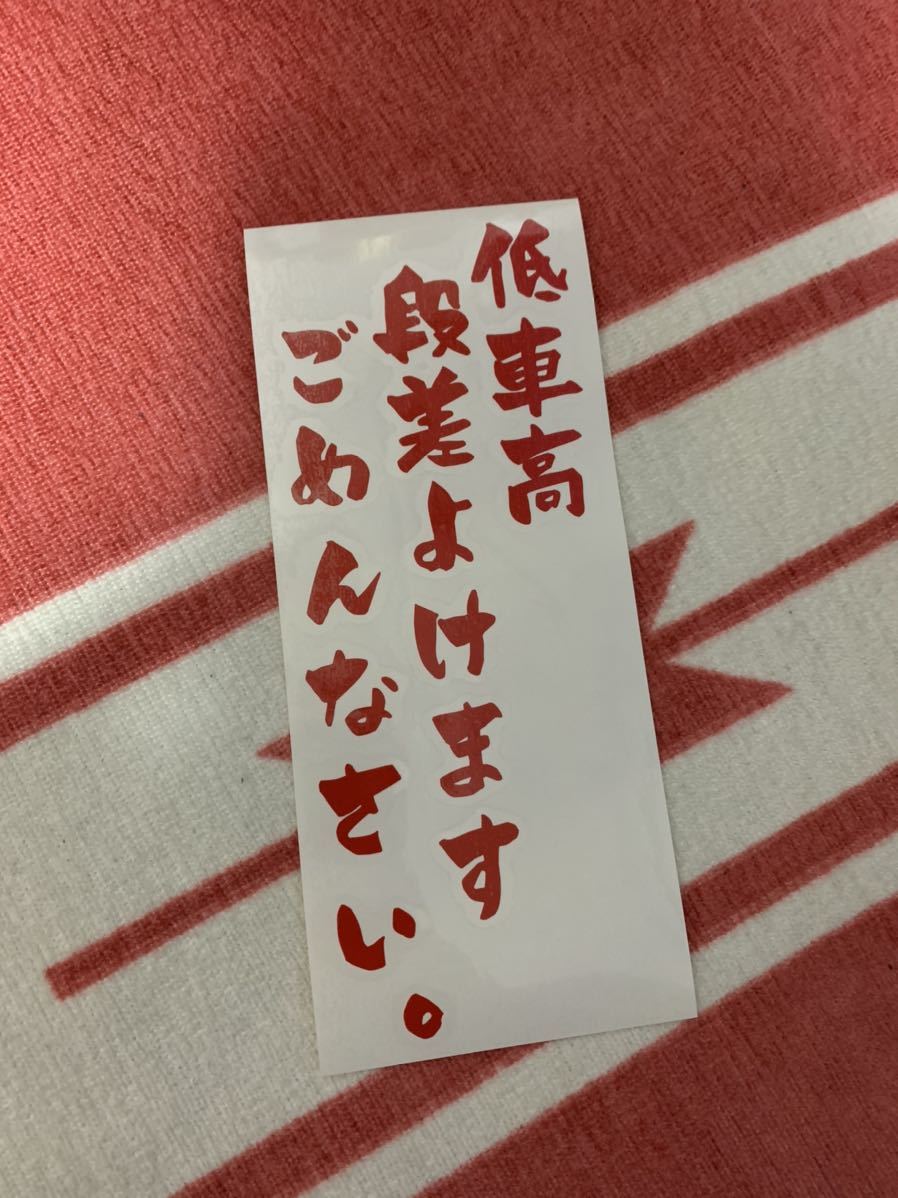 低車高
段差よけます
ごめんなさい。